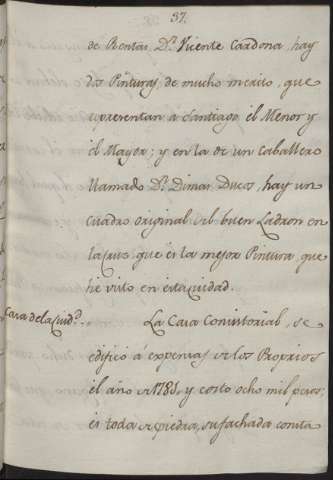 37.
de Rentas Dn. Vicente Cardona, hay
dos Pinturas de mucho merito, que
representan a Santiago el Menor y
el Mayor; y en la de un Caballero
llamado Dn. Dimas Ducos, hay un
cuadro original del buen Ladron en
la cruz, que es la mejor Pintura, que
he visto en esta ciudad.
Casa de la ciudd.
La Casa Consistorial, se
edificó á expensas de los Proprios
el año de 1781, y costo ocho mil pesos;
es toda de piedra, su fachada consta